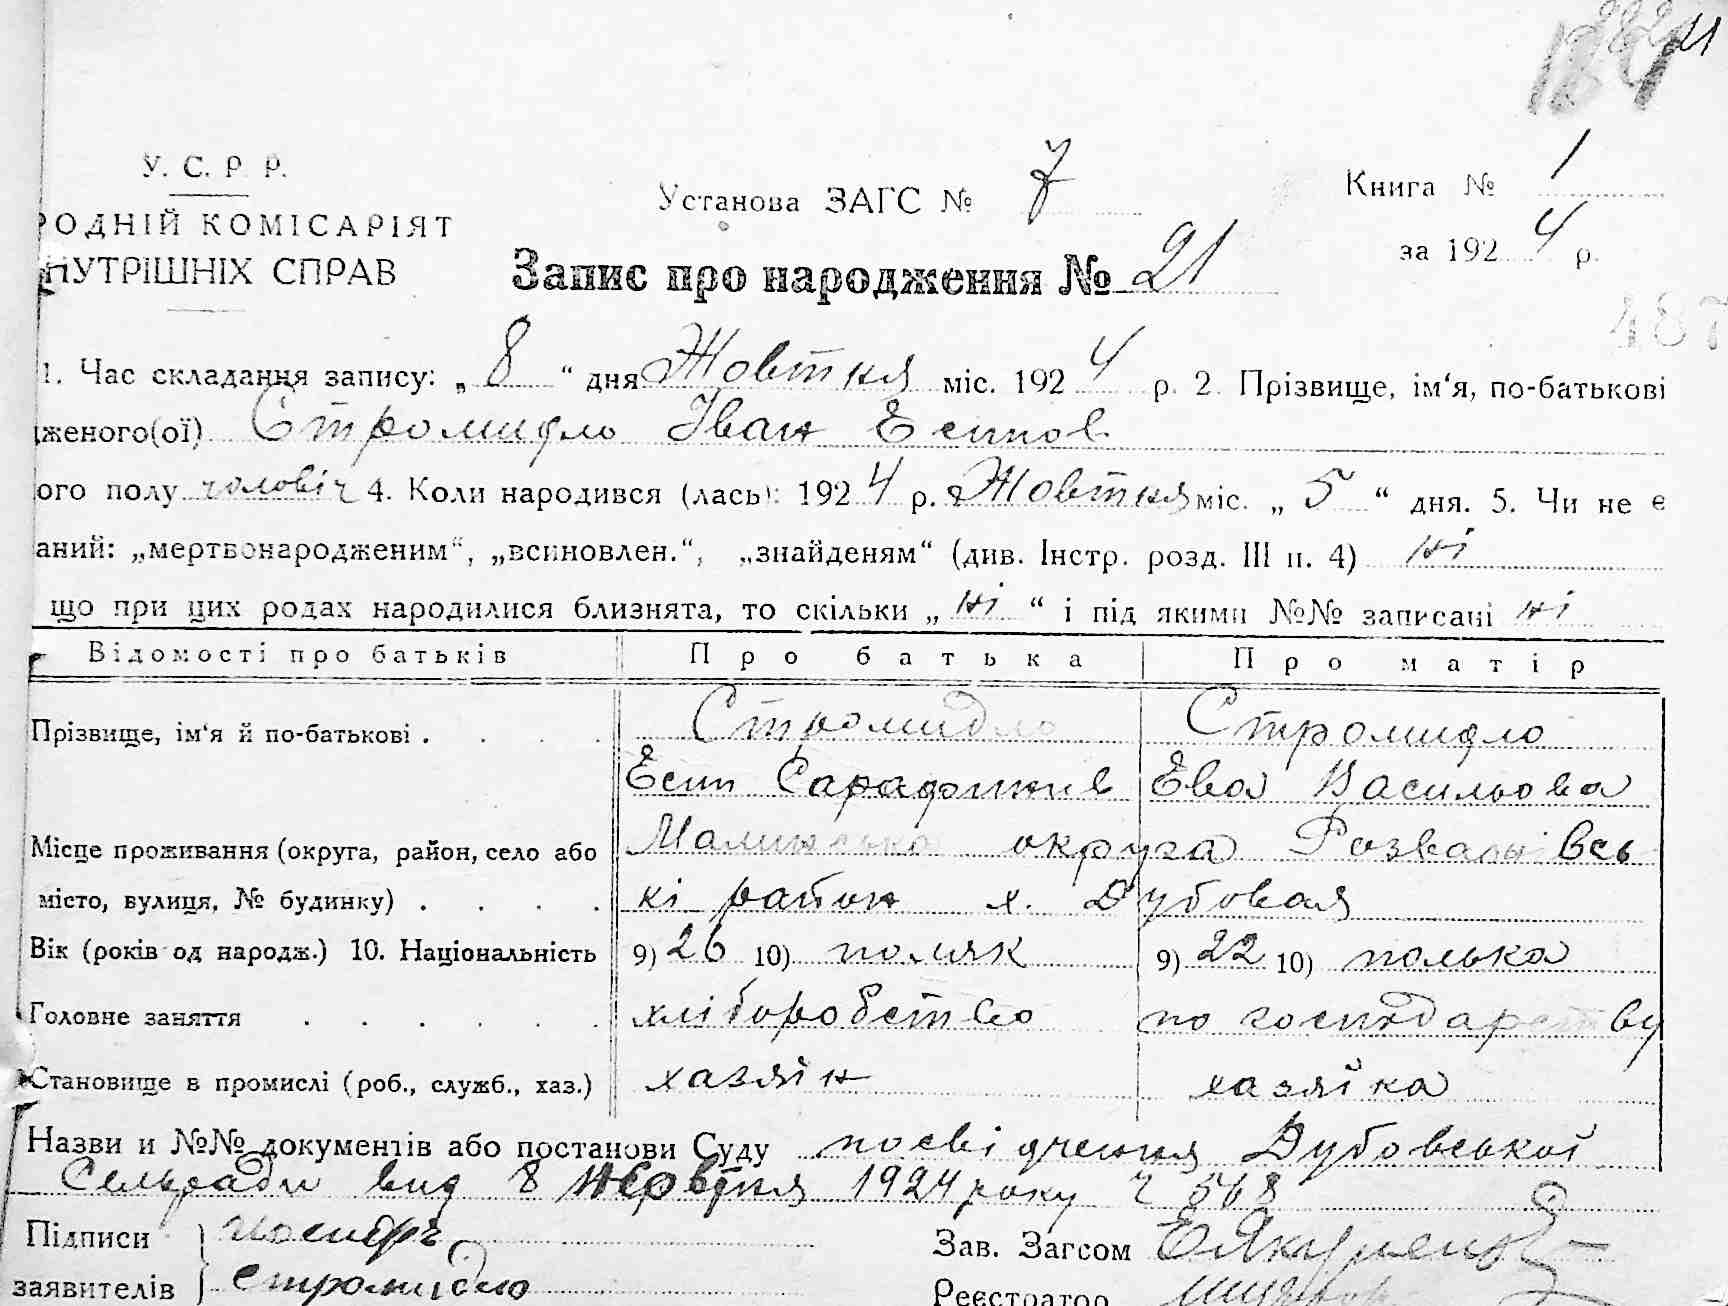 21
У. С. Р. Р.
РОДНІЙ КОМІСАРІЯТ
НУТРІШНІХ СПРАВ
Установа ЗАГС № 7
Книга № 1
за 1924 р.
Запис про народження № 21
487
1. Час складання запису: „ 8 “ дня Жовтня міс. 1924 р. 2. Прізвище, ім‘я, по-батькові
дженого(ої) Стромидло Іван Есипов
ого полу чоловіч 4. Коли народився (лась): 1924 р. Жовтня міс. „ 5 “ дня. 5. Чи не є
аний: „мертвонародженим“, „всиновлен.“, „знайденям“ (див. Інстр. розд. III п. 4) ні
що при цих родах народилися близнята, то скільки „ ні “ і під якими №№ записані ні
Відомості про батьків Про батька Про матір
Прізвище, ім‘я й по-батькові . . . . Стромидло Стромидло
Есип Сарафинив Ева Васильова
Місце проживання (округа, район, село або Малинська округа Розважівсь
місто, вулиця, № будинку) . . . . кі район х. Дубовая
Вік (років од народж.) 10. Національність 9) 26 10) поляк 9) 22 10) полька
Головне заняття . . . . . . хліборобство по господарству
Становище в промислі (роб., служб., хаз.) хазяін хазяйка
Назви и №№ документів або постанови Суду посвідчення Дубовської
Сельради вид 8 Жовтня 1924 року ч 568
Підписи
заявителів Стромидло
Зав. Загсом
Реєстратор